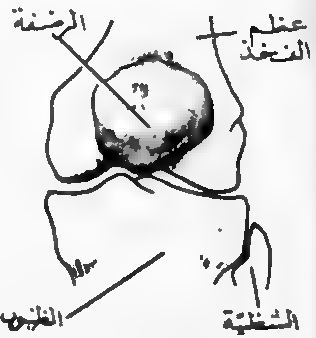 الرضفة
عظم
الفخذ
الظنبوب
الشظيّة